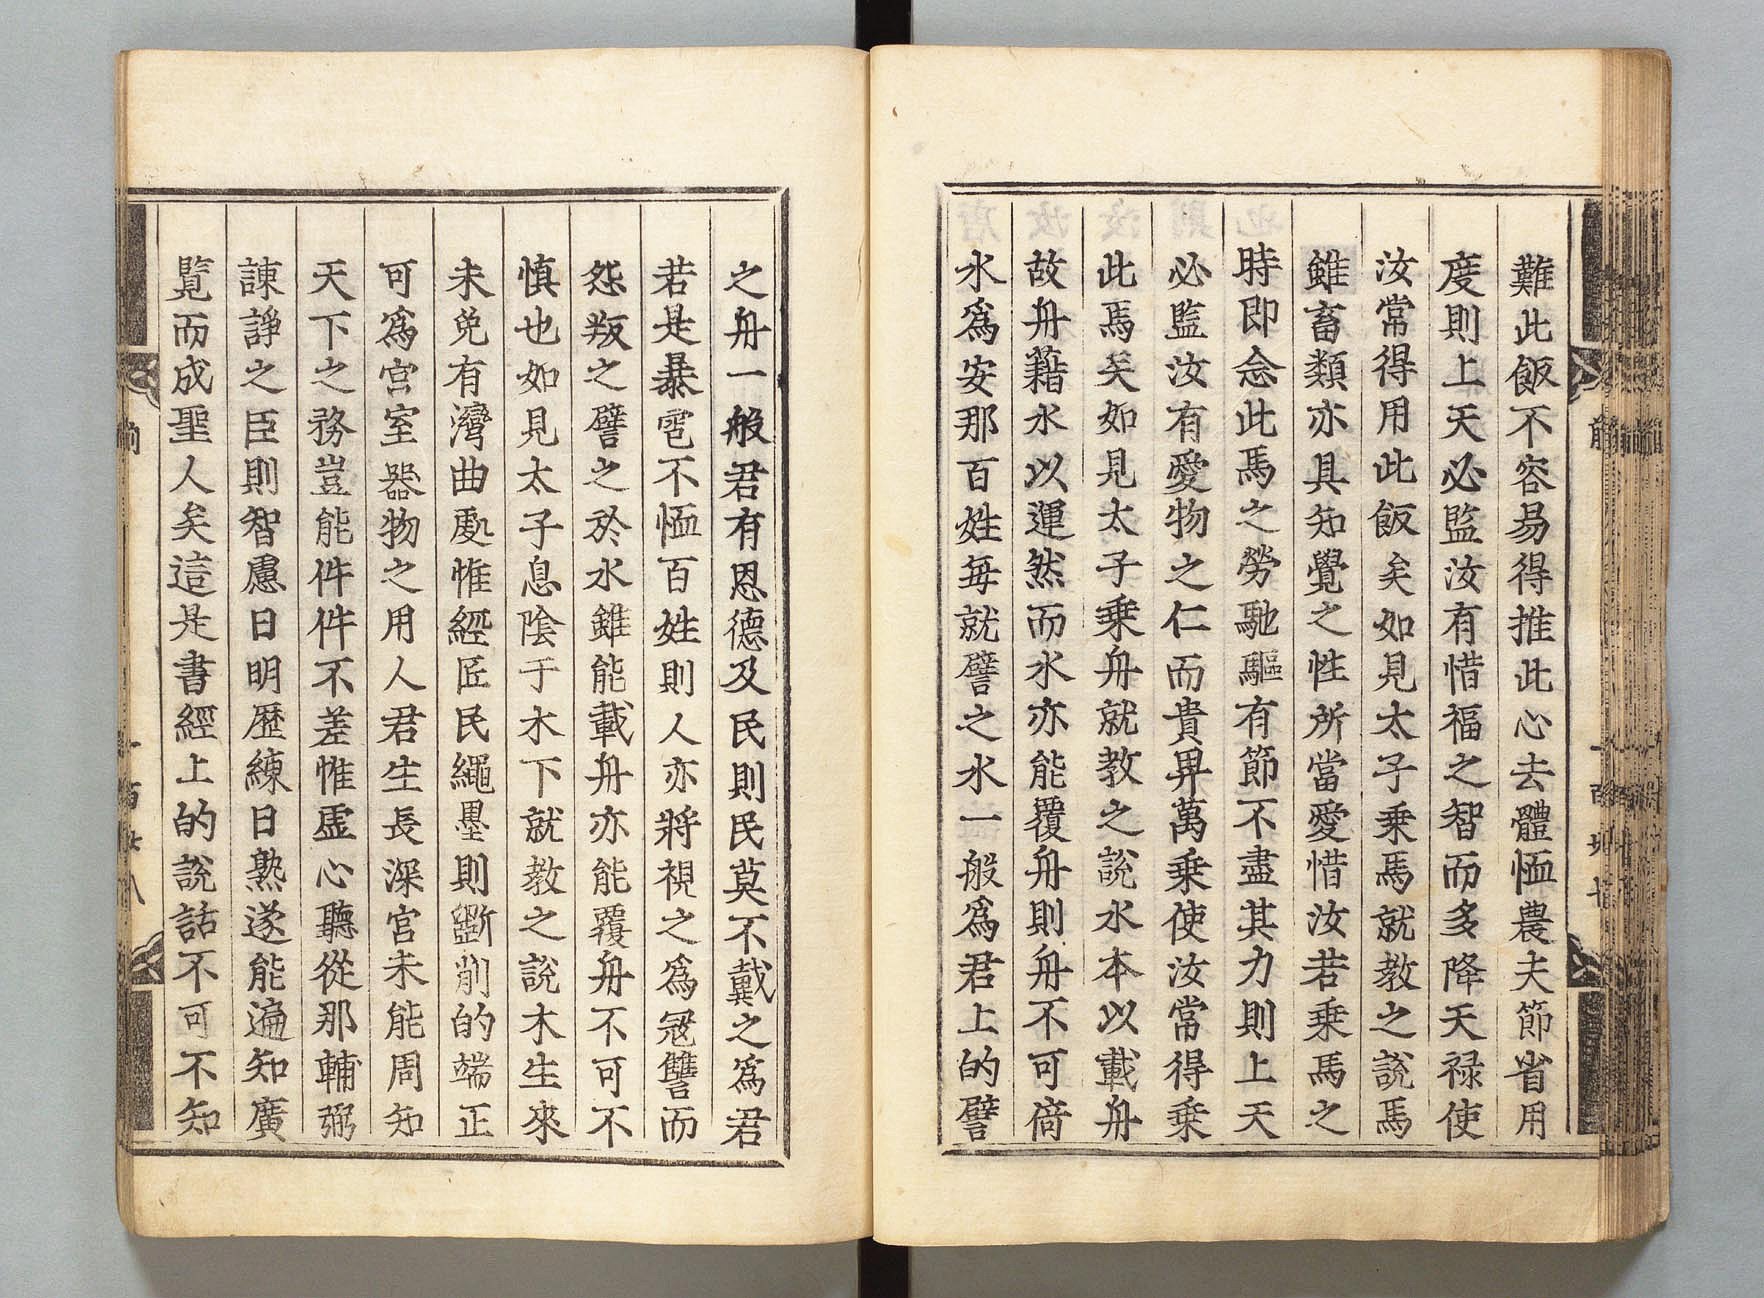 難此飯不容易得推此心去體恤農夫節省用
度則上天必監汝有惜福之智而多降天禄使
汝常得用此飯矣如見太子乗馬就教之說馬
雖畜類亦具知覺之性所當愛惜汝若乗馬之
時即念此馬之勞馳驅有節不盡其力則上天
必監汝有愛物之仁而貴畀萬乗使汝常得乗
此馬矣如見太子乗舟就教之說水本以載舟
故舟藉水以運然而水亦能覆舟則舟不可倚
水爲安那百姓每就譬之水一般爲君上的譬
之舟一般君有恩德及民則民莫不戴之爲君
若是暴虐不恤百姓則人亦將視之爲冦讐而
怨叛之譬之於水雖能載舟亦能覆舟不可不
慎也如見太子息陰于木下就教之說木生來
未免有灣曲處惟經匠民繩墨則斵削的端正
可爲宫室器物之用人君生長深宫未能周知
天下之務豈能件件不差惟虚心聽從那輔弼
諌諍之臣則智慮日明歴練日熟遂能遍知廣
覧而成聖人矣這是書經上的說話不可不知